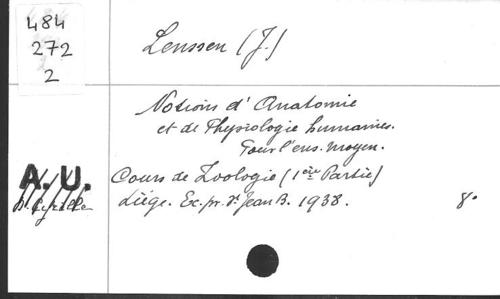 484
272
2
Lenssen (J.)
Notions d'Anatomie
et de Physiologie humaines.
Pour l'ens. moyen.
A. U. Cours de Zoologie (1ère Partie)
Liége. Ec. pr. St Jean B. 1938. 8°